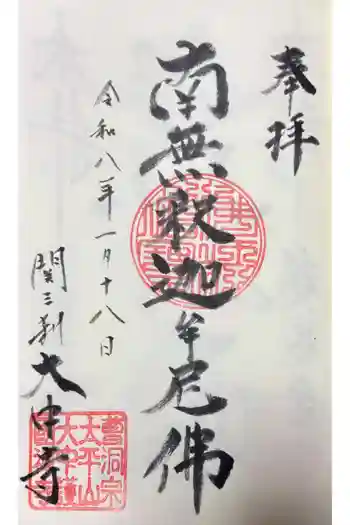 奉拝
南無釈迦牟尼佛
令和八年一月十八日
関三刹
大中寺
曹洞宗
太平山
大中